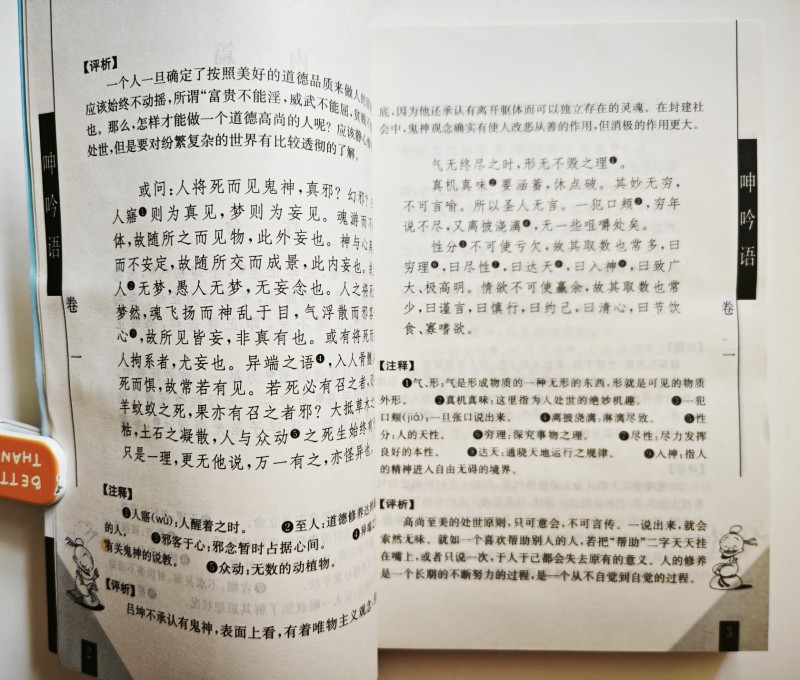 呻吟语
卷一
【评析】
一个人一旦确定了按照美好的道德品质来做人的
应该始终不动摇，所谓“富贵不能淫，威武不能屈，贫
也。那么，怎样才能做一个道德高尚的人呢？应该静心
处世，但是要对纷繁复杂的世界有比较透彻的了解。
或问：人将死而见鬼神，真邪？幻邪？
人寤❶则为真见，梦则为妄见。魂游而不
体，故随所之而见物，此外妄也。神与心
而不安定，故随所交而成景，此内妄也。
人❷无梦，愚人无梦，无妄念也。人之将死
梦然，魂飞扬而神乱于目，气浮散而邪客
心❸，故所见皆妄，非真有也。或有将死而
人拘系者，尤妄也。异端之语❹，入人骨髓
死而惧，故常若有见。若死必有召之者，
羊蚊蚁之死，果亦有召之者邪？大抵草木
枯，土石之凝散，人与众动❺之死生始终有
只是一理，更无他说，万一有之，亦怪异也
【注释】
❶人寤(wù)：人醒着之时。 ❷至人：道德修养达
的人。 ❸邪客于心：邪念暂时占据心间。 ❹异端之
有关鬼神的说教。 ❺众动：无数的动植物。
【评析】
吕坤不承认有鬼神，表面上看，有着唯物主义观念，
2
底，因为他还承认有离开躯体而可以独立存在的灵魂。在封建社
会中，鬼神观念确实有使人改恶从善的作用，但消极的作用更大。
气无终尽之时，形无不毁之理❶。
真机真味❷要涵蓄，休点破。其妙无穷，
不可言喻。所以圣人无言。一犯口颊❸，穷年
说不尽，又离披浇漓❹，无一些咀嚼处矣。
性分❺不可使亏欠，故其取数也常多，曰
穷理❻，曰尽性❼，曰达天❽，曰入神❾，曰致广
大、极高明。情欲不可使赢余，故其取数也常
少，曰谨言，曰慎行，曰约己，曰清心，曰节饮
食、寡嗜欲。
【注释】
❶气、形：气是形成物质的一种无形的东西，形就是可见的物质
外形。 ❷真机真味：这里指为人处世的绝妙机趣。 ❸一犯
口颊(jiá)：一旦张口说出来。 ❹离披浇漓：淋漓尽致。 ❺性
分：人的天性。 ❻穷理：深究事物之理。 ❼尽性：尽力发挥
良好的本性。 ❽达天：通晓天地运行之规律。 ❾入神：指人
的精神进入自由无碍的境界。
【评析】
高尚至美的处世原则，只可意会，不可言传。一说出来，就会
索然无味。就如一个喜欢帮助别人的人，若把“帮助”二字天天挂
在嘴上，或者只说一次，于人于己都会失去原有的意义。人的修养
是一个长期的不断努力的过程，是一个从不自觉到自觉的过程。
呻吟语
卷一
3
BETT
THAN